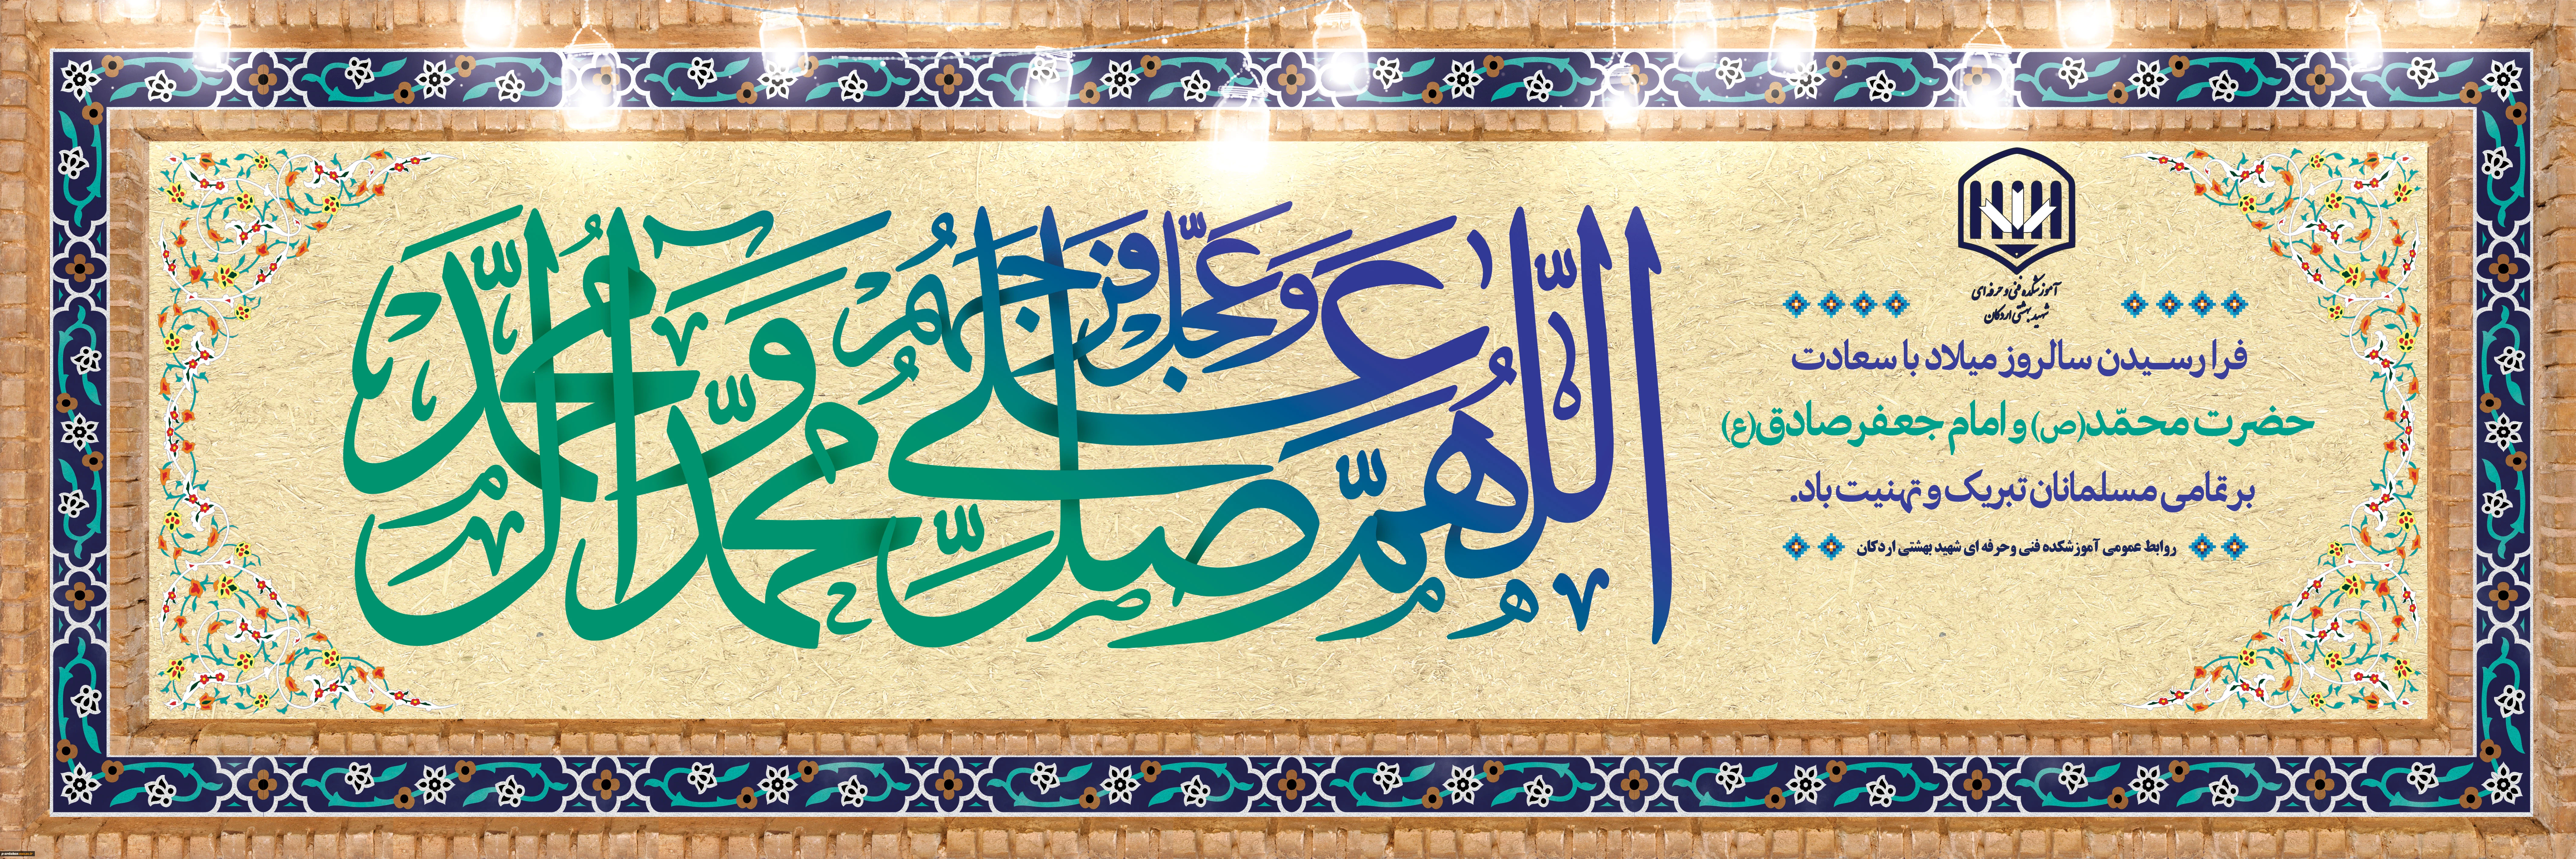 اللّهمّ صلّ علی محمّد وآل محمّد وعجّل فرجهم
آموزشکده فنی و حرفه ای
شهید بهشتی اردکان
فرا رسیدن سالروز میلاد با سعادت
حضرت محمّد(ص) و امام جعفر صادق(ع)
بر تمامی مسلمانان تبریک و تهنیت باد.
روابط عمومی آموزشکده فنی وحرفه ای شهید بهشتی اردکان